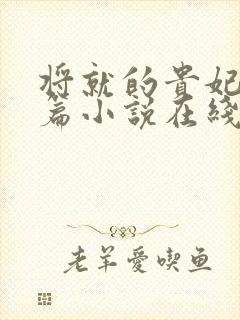 将就的貴妃
篇小説在綫
老羊愛喫鱼